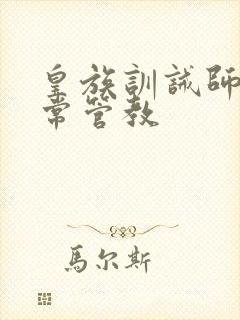 皇族訓誡師
常管教
馬尔斯